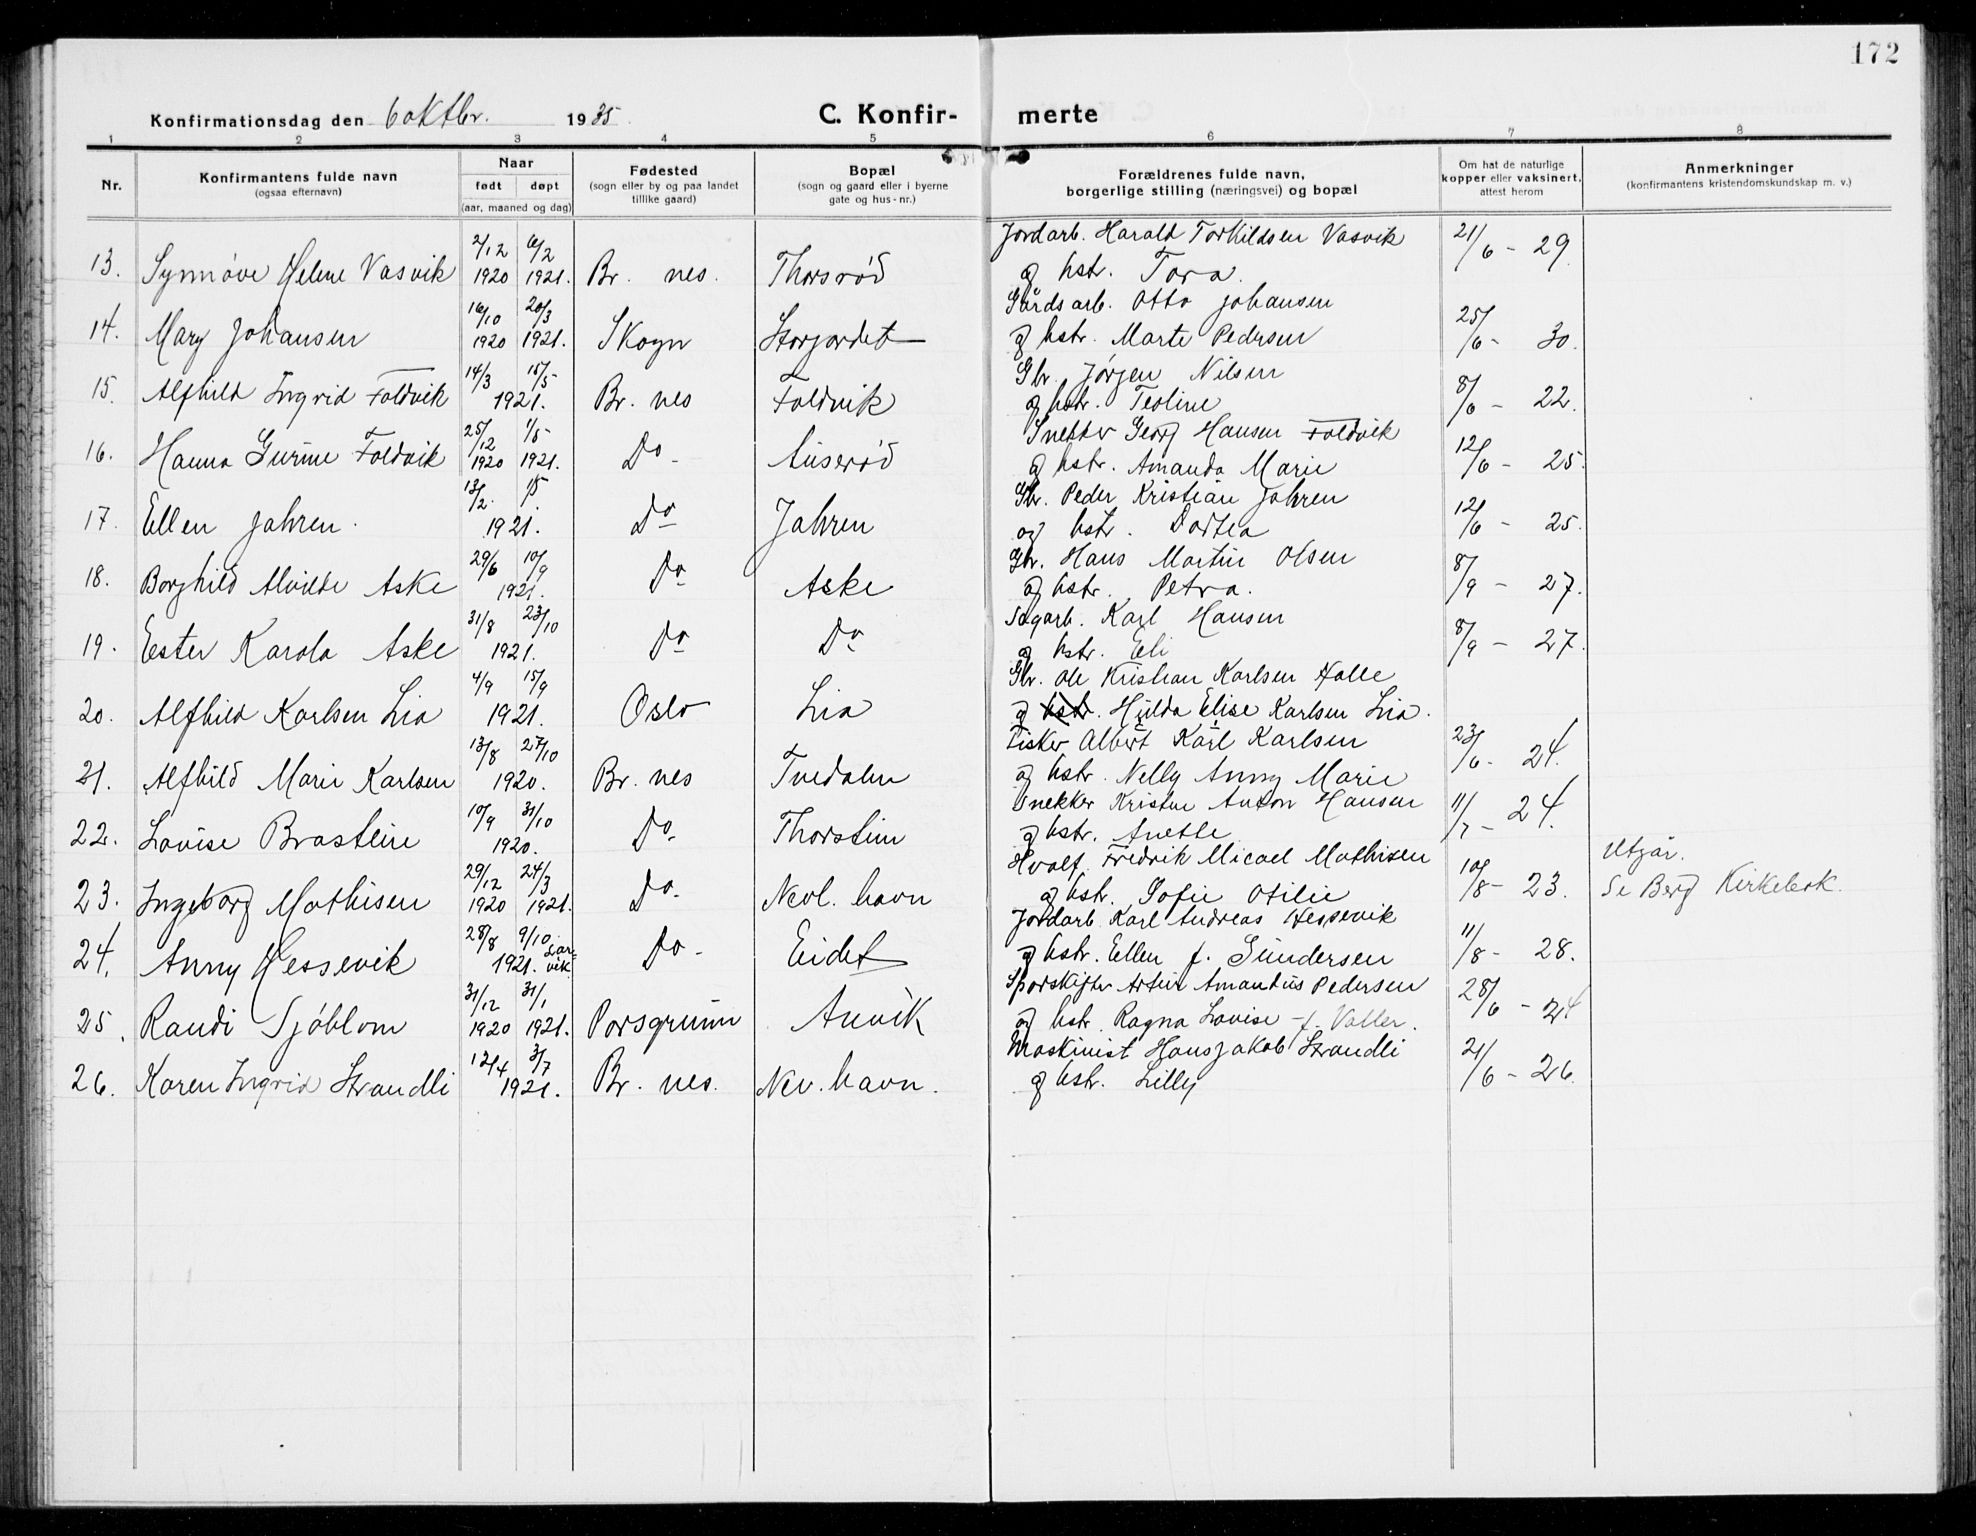 172
Konfirmationsdag den 6 oktbr. 1935. C. Konfir- merte
1 2 3 4 5 6 7 8
Nr. Konfirmantens fulde navn (ogsaa efternavn) Naar født døpt (aar, maaned og dag) Fødested (sogn eller by og paa landet tillike gaard) Bopæl (sogn og gaard eller i byerne gate og hus-nr.) Forældrenes fulde navn, borgerlige stilling (næringsvei) og bopæl Om hat de naturlige kopper eller vaksinert, attest herom Anmerkninger (konfirmantens kristendomskundskap m. v.)
13. Synnøve Helene Vasvik 2/12 1920 6/2 1921. Br. nes. Thorsrød Jordarb. Harald Torkildsen Vasvik 21/6 - 29.
og hstr. Tora.
14. Mary Johansen 16/10 1920 20/3 1921. Skogn Storjordet Gårdsarb. Otto Johansen 25/6 - 30.
og hstr. Marte Pedersen
15. Alfhild Ingrid Foldvik 14/3 15/5 1921. Br. nes Foldvik Gbr. Jørgen Nilsen 8/6 - 22.
og hstr. Teoline
16. Hanna Gurine Foldvik 25/12 1920 1/5 1921. Do - Auserød Snekker Georg Hansen Foldvik 12/6 - 25.
og hstr. Amanda Marie
17. Ellen Jahren. 13/2. 1/5. 1921. Do Jahren Gbr. Peder Kristian Jahren 12/6 - 25.
og hstr. Dortea
18. Borghild Alvilde Aske 29/6 10/9 1921. Do Aske Gbr. Hans Martin Olsen 8/9 - 27.
og hstr. Petra.
19. Ester Karola Aske 31/8 23/10 1921. Do Do Sagarb. Karl Hansen 8/9 - 27.
og hstr. Eli
20. Alfhild Karlsen Lia 4/9 15/9 1921. Oslo Lia Gbr. Ole Kristian Karlsen Halle
og hstr. Hulda Elise Karlsen Lia.
21. Alfhild Marie Karlsen 13/8 27/10 1920. Br. nes Tvedalen Fisker Albert Karl Karlsen 23/6 - 24.
og hstr. Nelly Anny Marie
22. Lovise Brastein 10/9 31/10 1920. Do - Thorstein Snekker Kristen Anton Hansen 11/7 - 24.
og hstr. Anette
23. Ingeborg Mathisen 29/12 1920 24/3 1921. Do - Nevl. havn Hvalf. Fredrik Micael Mathisen 10/8 - 23. Utgår. Se Berg Kirkebok.
og hstr. Sofie Otilie
24. Anny Hessevik 28/8 9/10 1921. Larvik Do - Eidet Jordarb. Karl Andreas Hessevik 11/8 - 28.
og hstr. Ellen f. Gundersen
25. Randi Sjöblom 31/12 1920 31/1 1921. Porsgrunn Anvik Sporskifter Artur Amandus Pedersen 28/6 - 24
og hstr. Ragna Lovise f. Valler.
26. Karen Ingrid Strandli 12/4 3/7 1921. Br. nes. Nev. havn. Maskinist Hans Jakob Strandli 21/6 - 26.
og hstr. Lilly